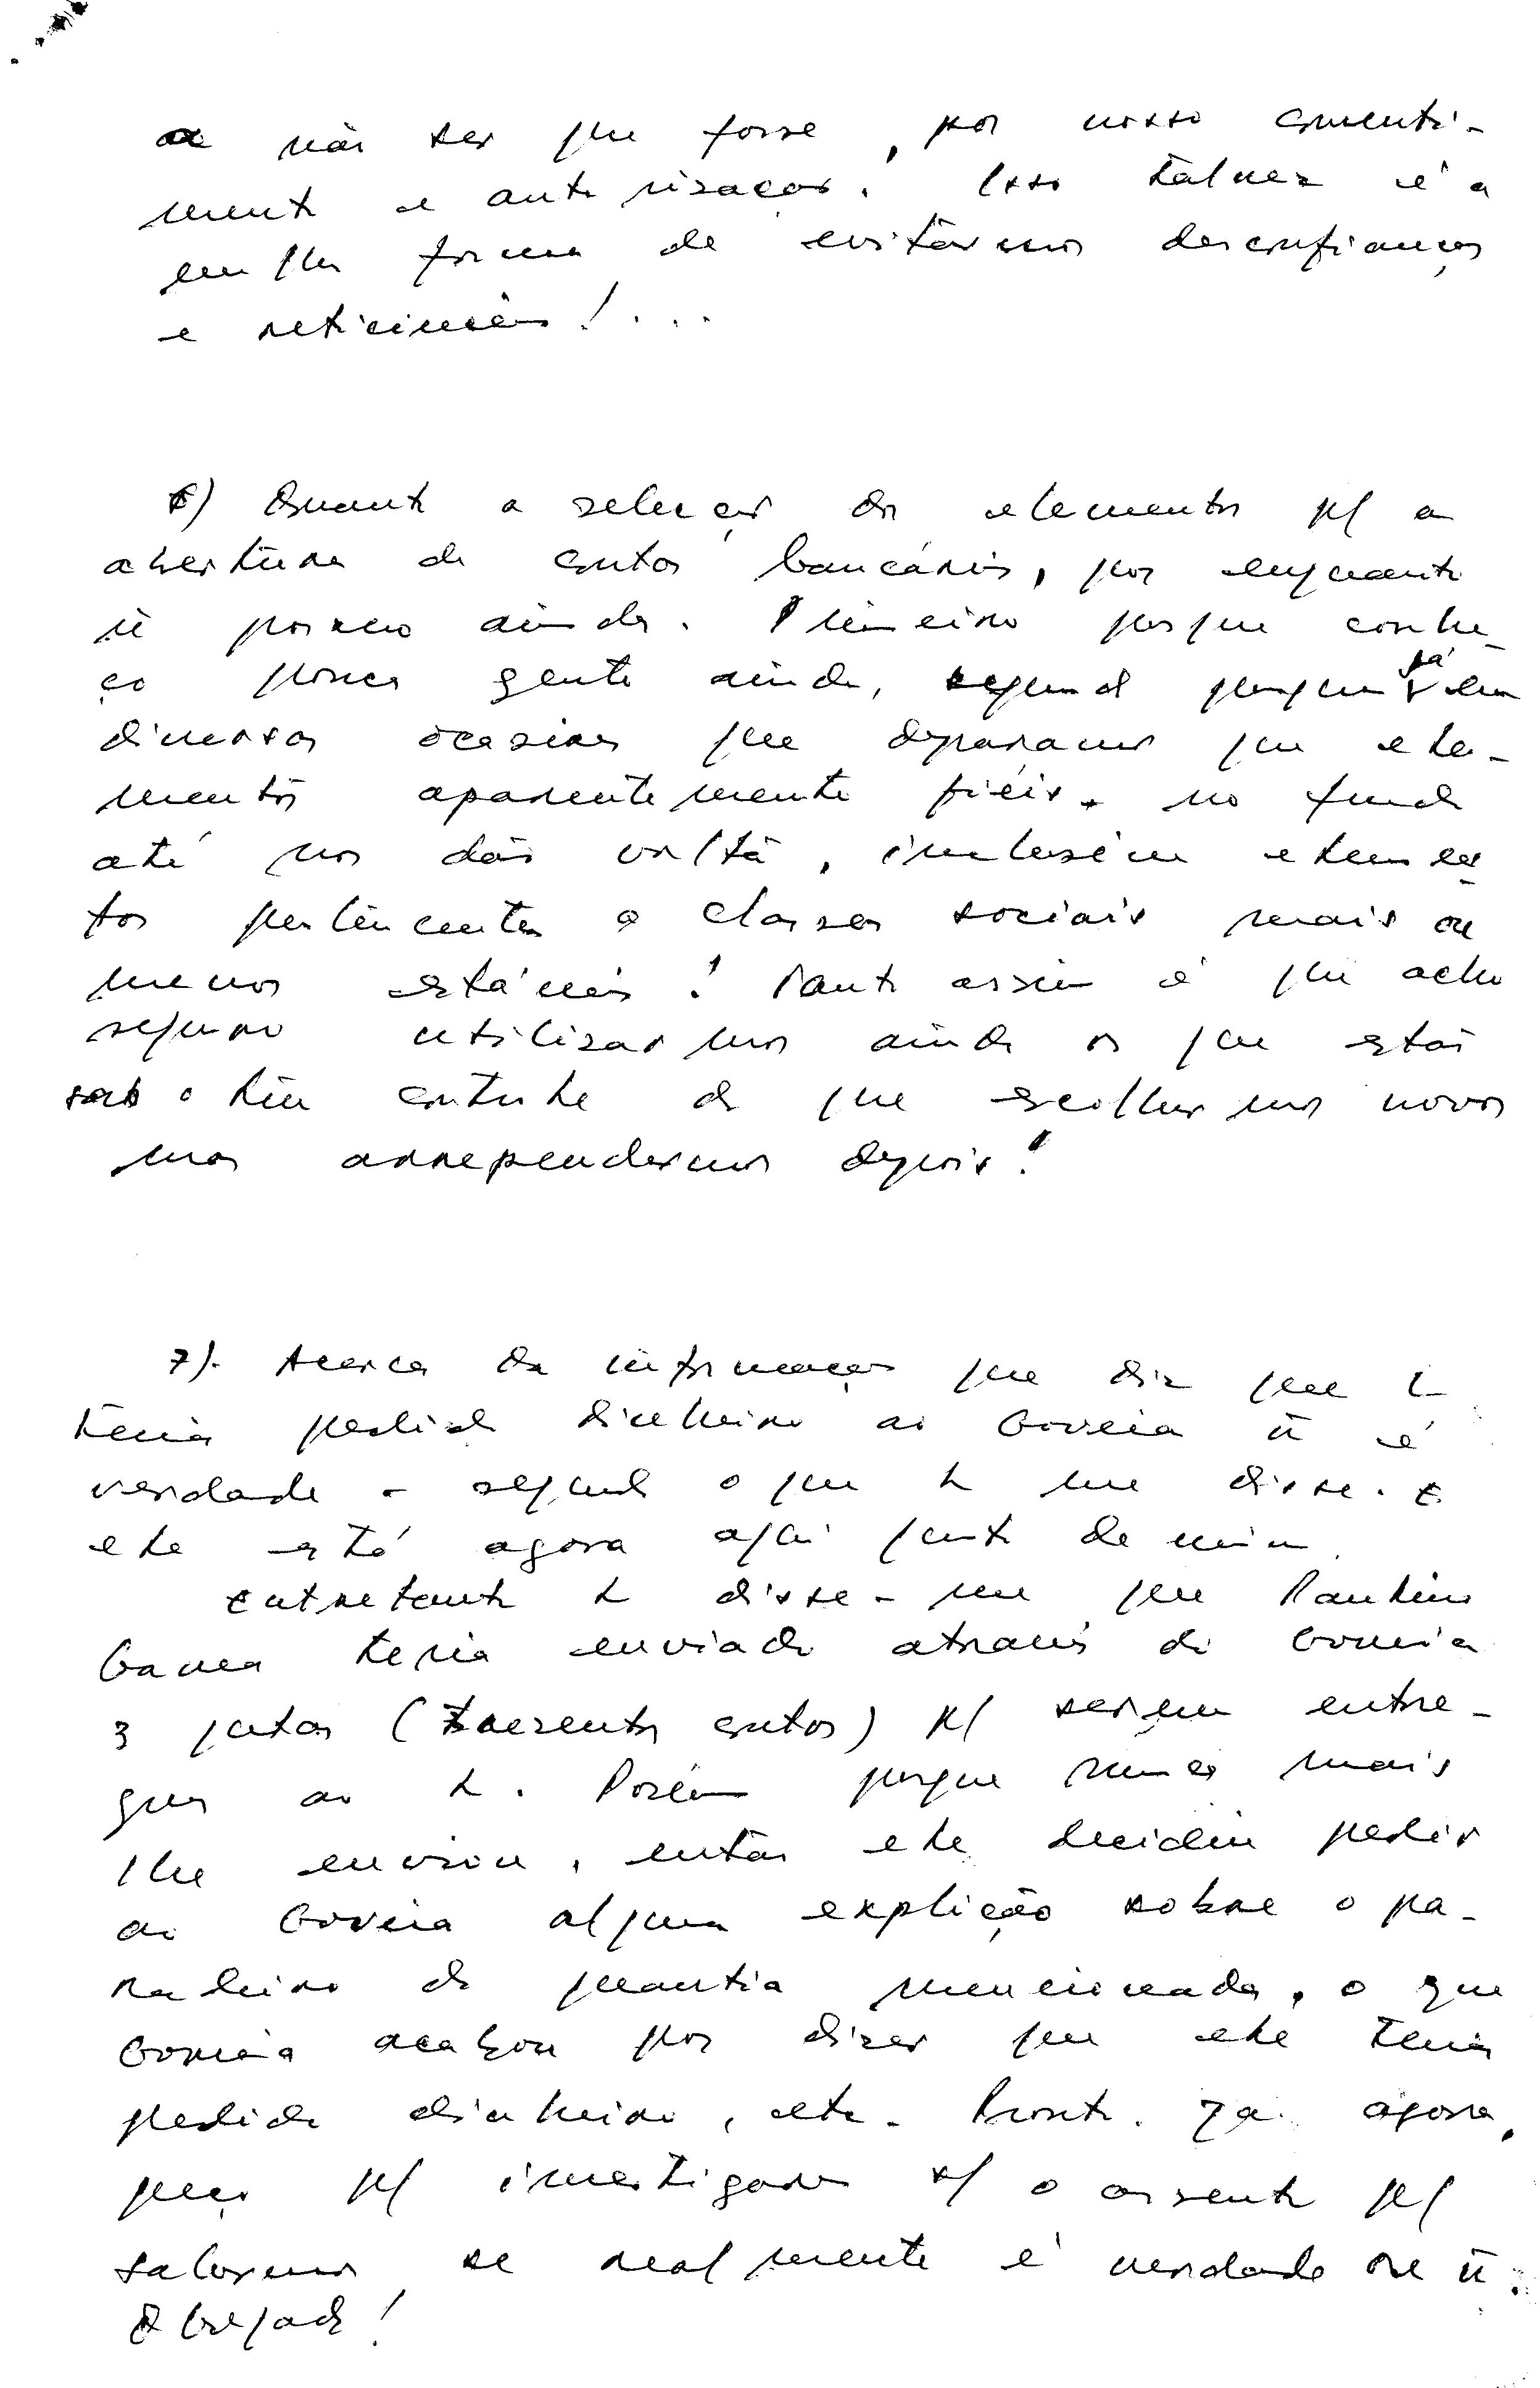 a não ser que fosse, por nosso consenti-
mento e autorização. Isso talvez é a
forma de evitarmos desconfianças
e reticências!...
6) Quanto a selecção dos elementos p/ a
abertura de contas bancárias, por enquanto
ñ posso ainda. Primeiro porque conhe-
ço pouca gente ainda, segundo porque já em
diversas ocasiões que deparamos que ele-
mentos aparentemente fiéis, no fundo
até nos dão volta, inclusive elemen-
tos pertencentes a classes sociais mais ou
menos estáveis! Tanto assim é que acho
seguro utilizarmos ainda os que estão
sob o teu controle do que escolhermos novos
mas arrependermos depois!
7). Acerca da informação que diz que L
teria pedido dinheiro ao Gouveia ñ é
verdade - segundo o que L me disse. E
ele está agora aqui junto de mim.
Entretanto L disse-me que Paulino
teria enviado através do Gouveia
3 jutas (trezentos contos) p/ serem entre-
gues ao L. Porém porque nunca mais
lhe enviou, então ele decidiu pedir
ao Gouveia alguma explição sobre o pa-
radeiro da quantia mencionada, o que
Gouveia acabou por dizer que ele teria
pedido dinheiro, etc. Pronto. Já agora,
peço p/ investigar s/ o assunto p/
sabermos se realmente é verdade ou ñ.
Obrigado!